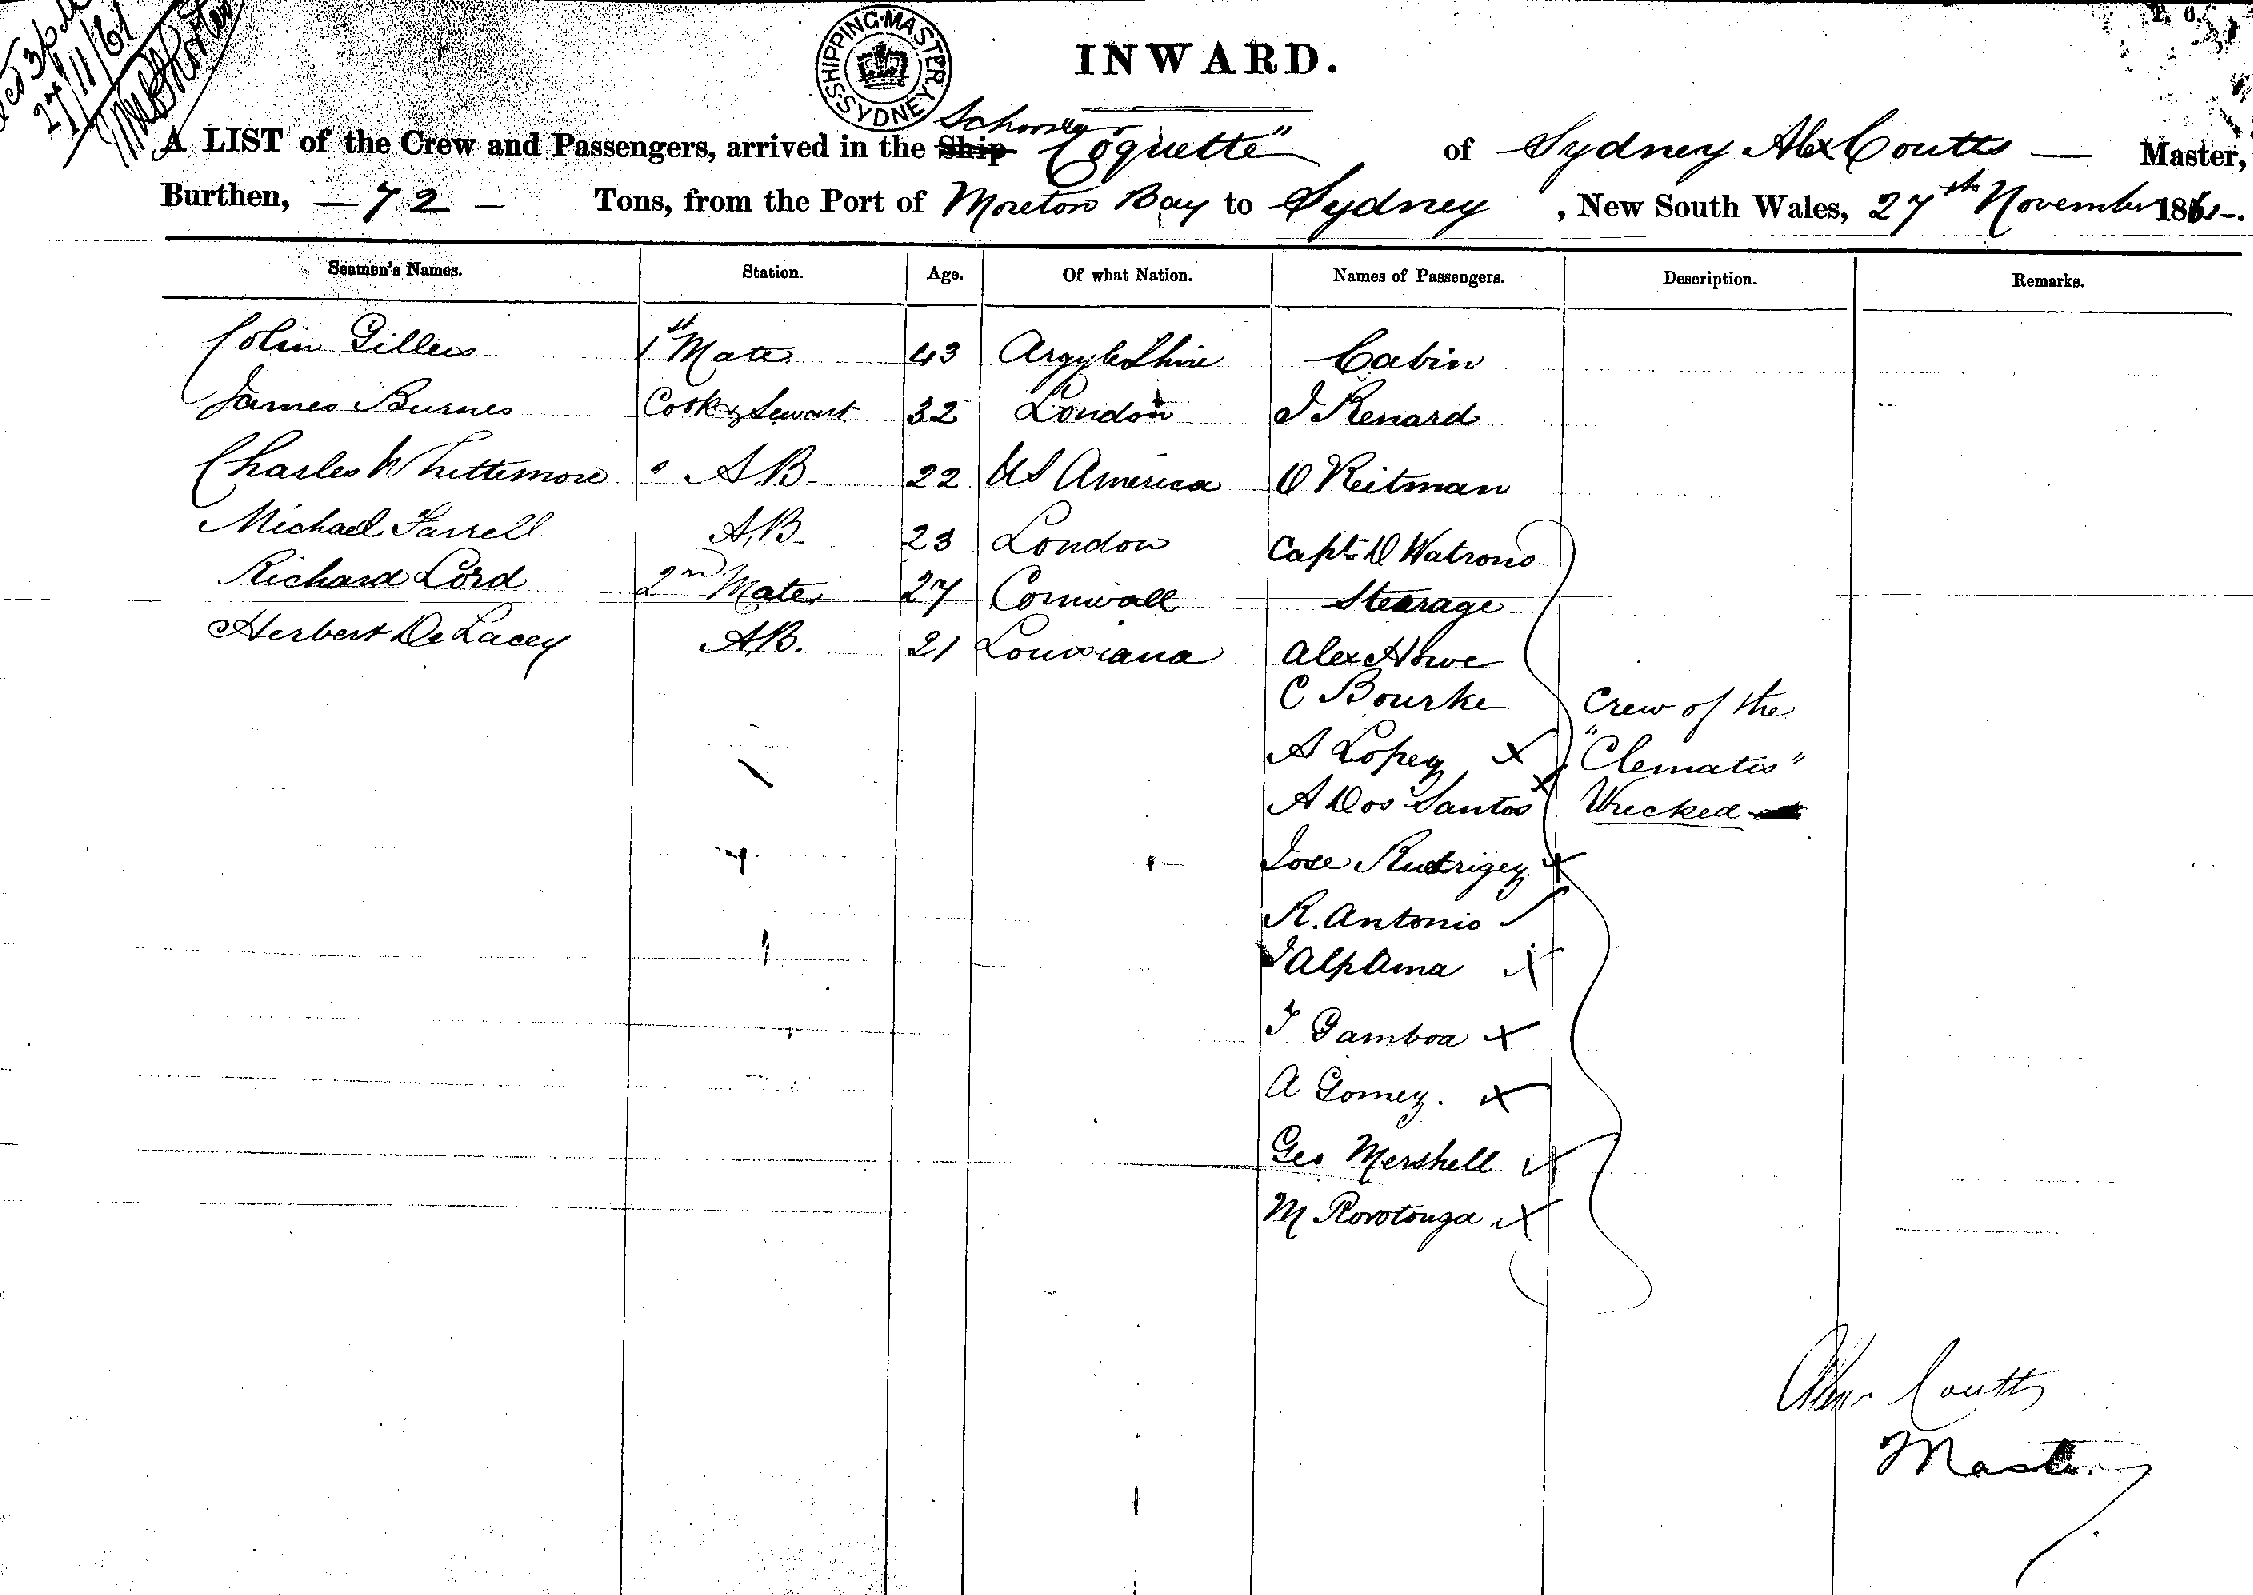 27/11/61
SHIPPING MASTERS SYDNEY
INWARD.
A LIST of the Crew and Passengers, arrived in the Ship Schooner "Coquette" of Sydney Alex Coutts — Master,
Burthen, — 72 — Tons, from the Port of Moreton Bay to Sydney, New South Wales, 27th November 1861.
Seamen's Names. Station. Age. Of what Nation. Names of Passengers. Description. Remarks.
Colin Gillies 1st Mate 43 Argyleshire Cabin
James Burnes Cook & Stewart 32 London J Renard
Charles Whittemore A B. 22 US America O Reitman
Michael Farrell A.B. 23 London Capt D Watrons
Richard Lord 2nd Mate 27 Cornwall Stearage
Herbert De Lacey AB. 21 Louisiana Alex Howe
C Bourke Crew of the
A Lopez X "Clematis"
A Dos Santos X Wrecked
Jose Rudrigez X
R. Antonio
J AlpAma X
J Gamboa X
A Gomez. X
Geo Mershell X
M Rorotonga X
Alexr Coutts
Master